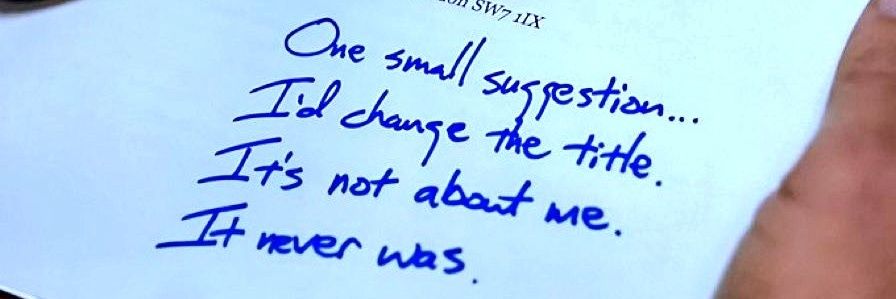 on SW7 1IX
One small suggestion...
I'd change the title.
It's not about me.
It never was.